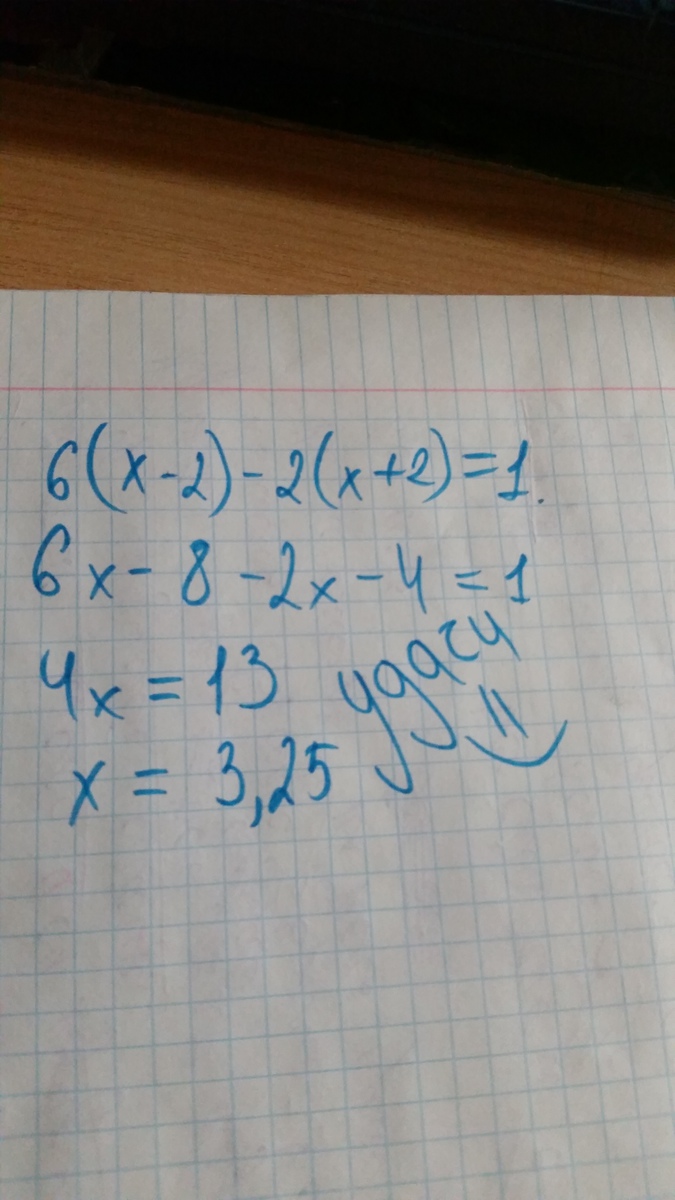 6(x-2)-2(x+2)=1.
6x-8-2x-4=1
4x=13
x=3,25
удачи